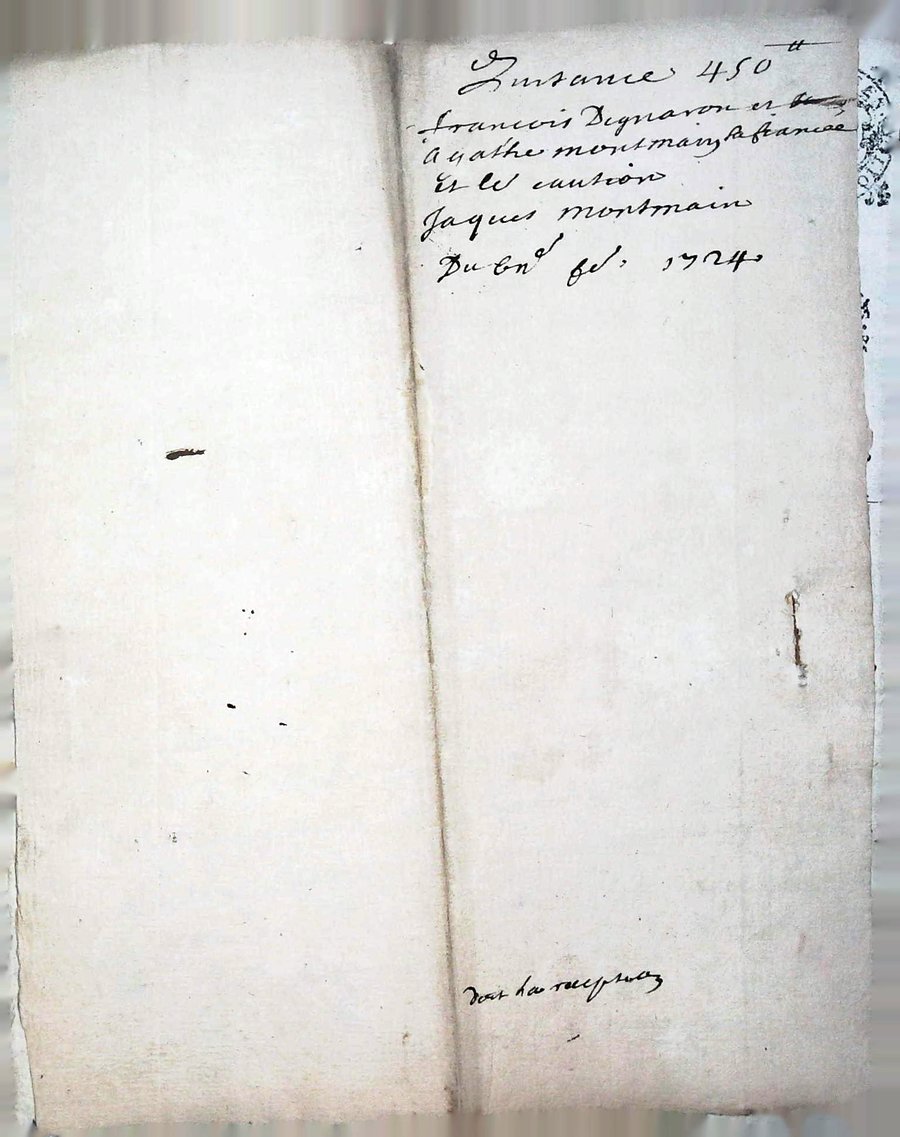 Quitance 450 ᵗᵗ
francois Dignaron et
agathe montmain sa fiancée
Et le caution
Jaques montmain
Du 6ⁿᵉ fe. 1724.
doit la reception